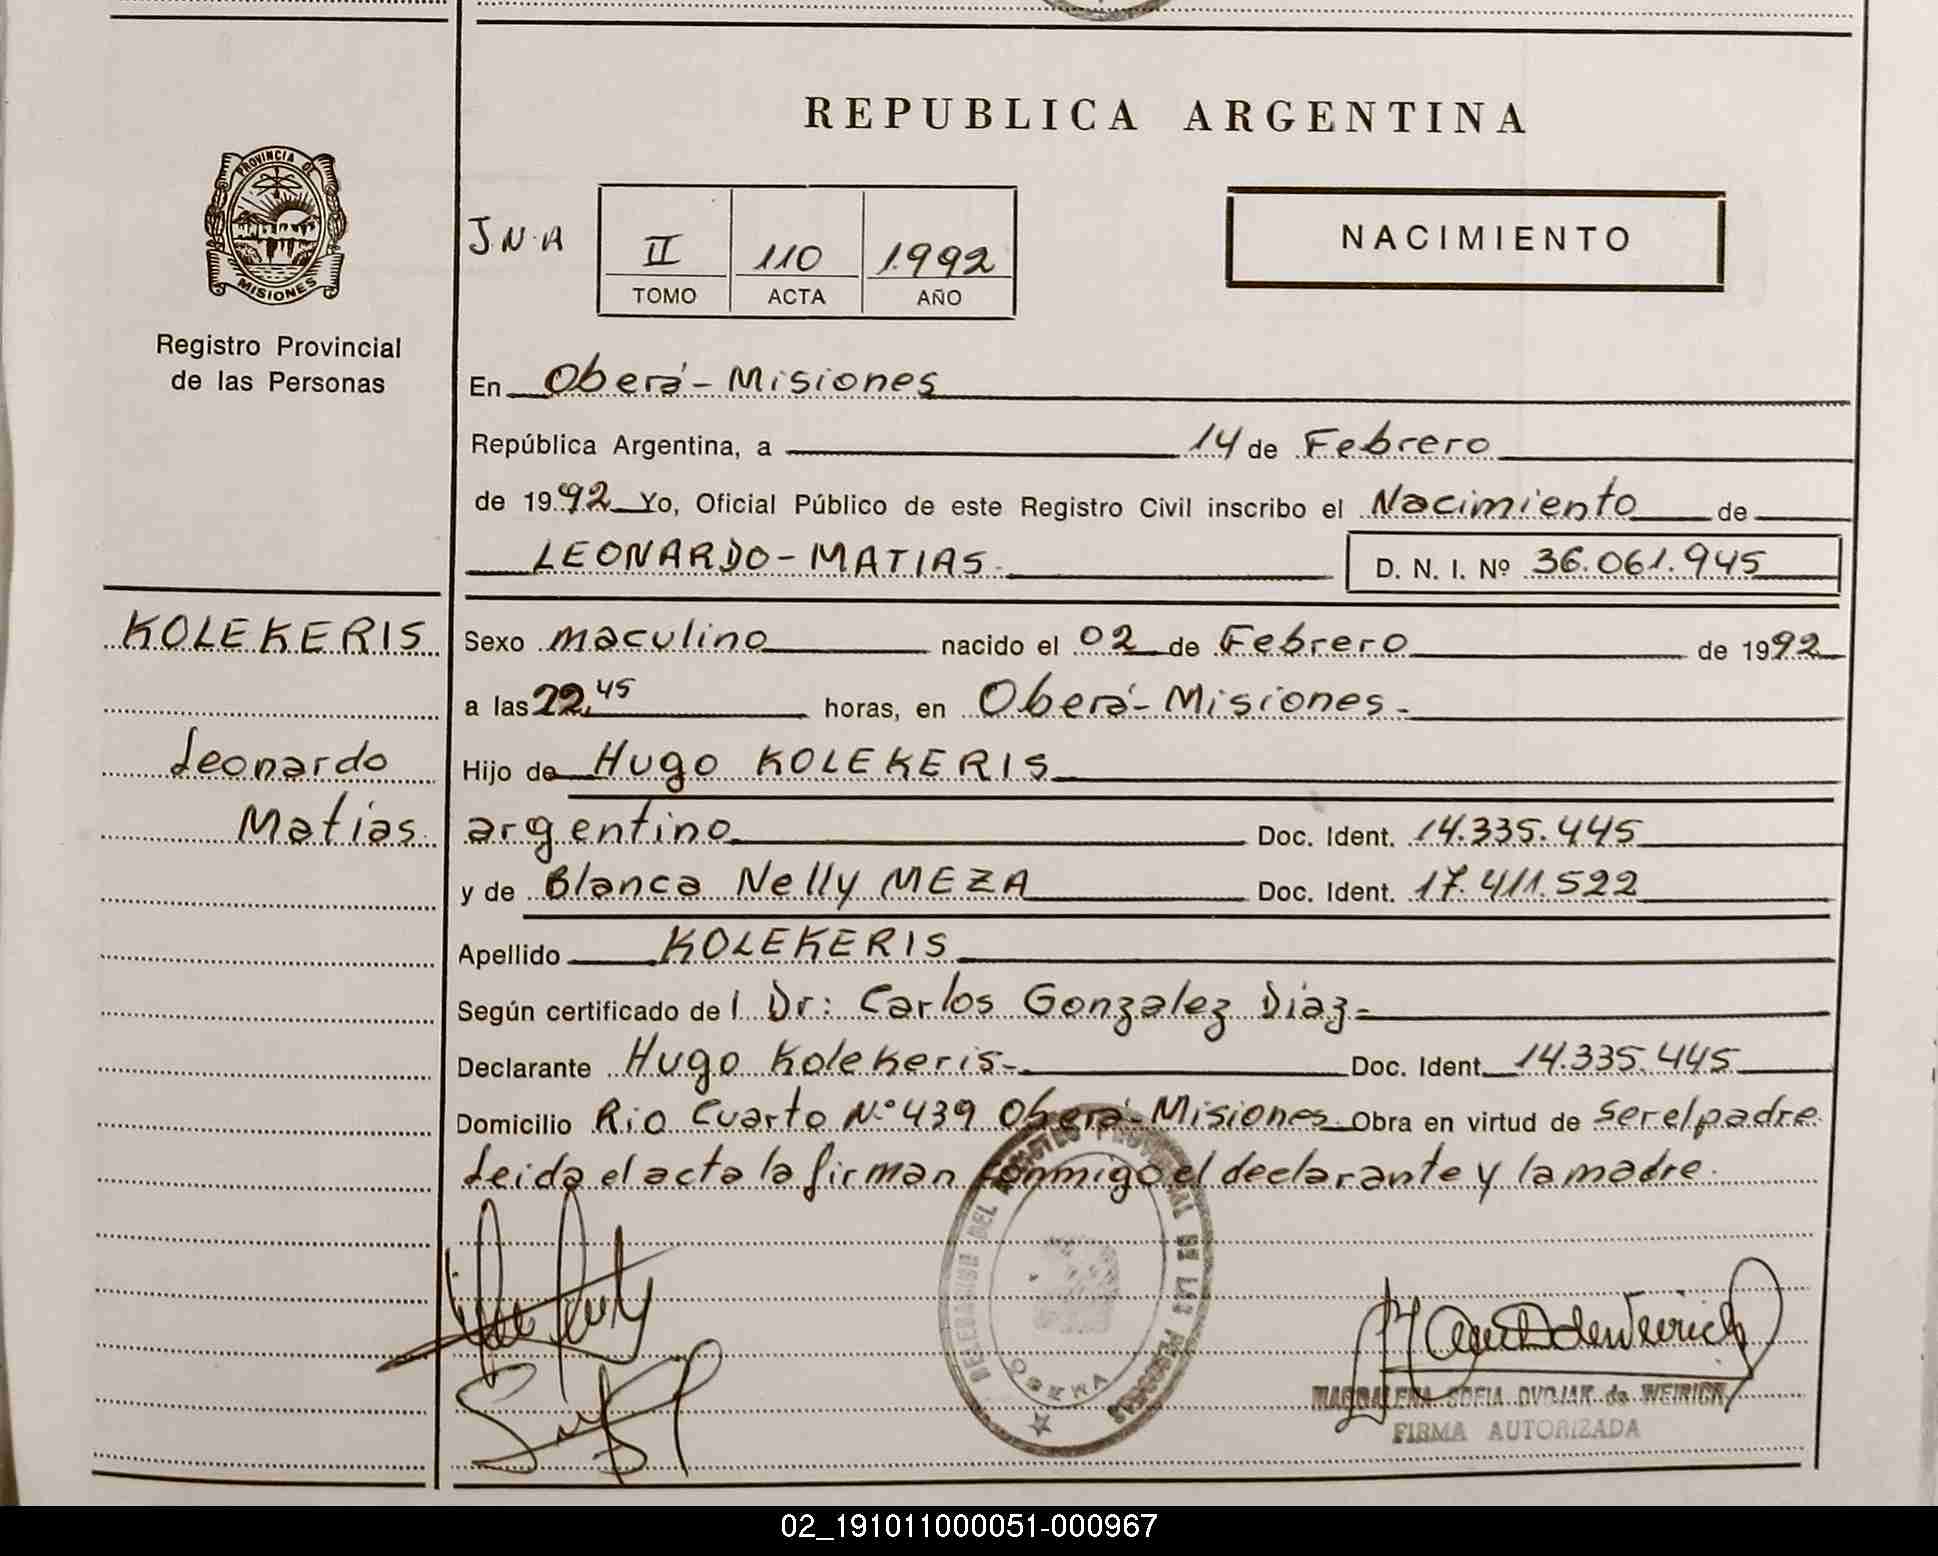 REPUBLICA ARGENTINA
PROVINCIA DE
MISIONES
Registro Provincial
de las Personas
J.N.A
II 110 1.992
TOMO ACTA AÑO
NACIMIENTO
En Oberá - Misiones
República Argentina, a 14 de Febrero
de 1992 Yo, Oficial Público de este Registro Civil inscribo el Nacimiento de
LEONARDO - MATIAS. D. N. I. Nº 36.061.945
KOLEKERIS
Leonardo
Matias.
Sexo maculino nacido el 02 de Febrero de 1992
a las 22,45 horas, en Oberá - Misiones.-
Hijo de Hugo KOLEKERIS
argentino Doc. Ident. 14.335.445
y de Blanca Nelly MEZA Doc. Ident. 17.411.522
Apellido KOLEKERIS
Según certificado de l Dr: Carlos Gonzalez Diaz=
Declarante Hugo Kolekeris.- Doc. Ident. 14.335.445
Domicilio Rio Cuarto N.º 439 Oberá - Misiones Obra en virtud de ser el padre
Leida el acta la firman conmigo el declarante y la madre.
DELEGACION DEL REGISTRO PROVINCIAL DE LAS PERSONAS
OBERA
MAGDALENA SOFIA DVOJAK de WEIRICH
FIRMA AUTORIZADA
02_191011000051-000967